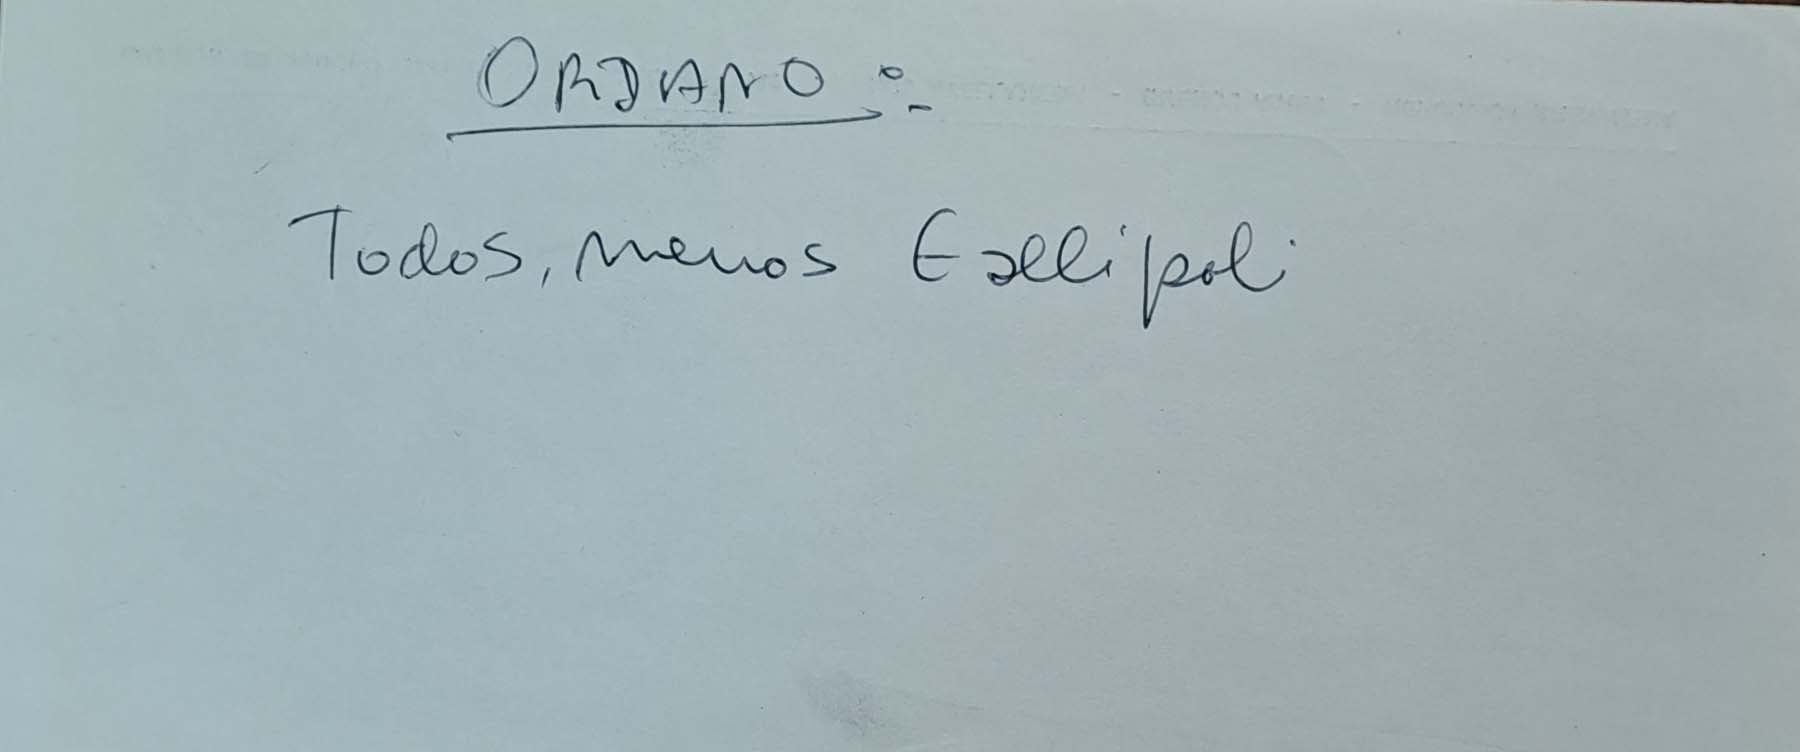 ORDANO:-
Todos, menos Gallipoli